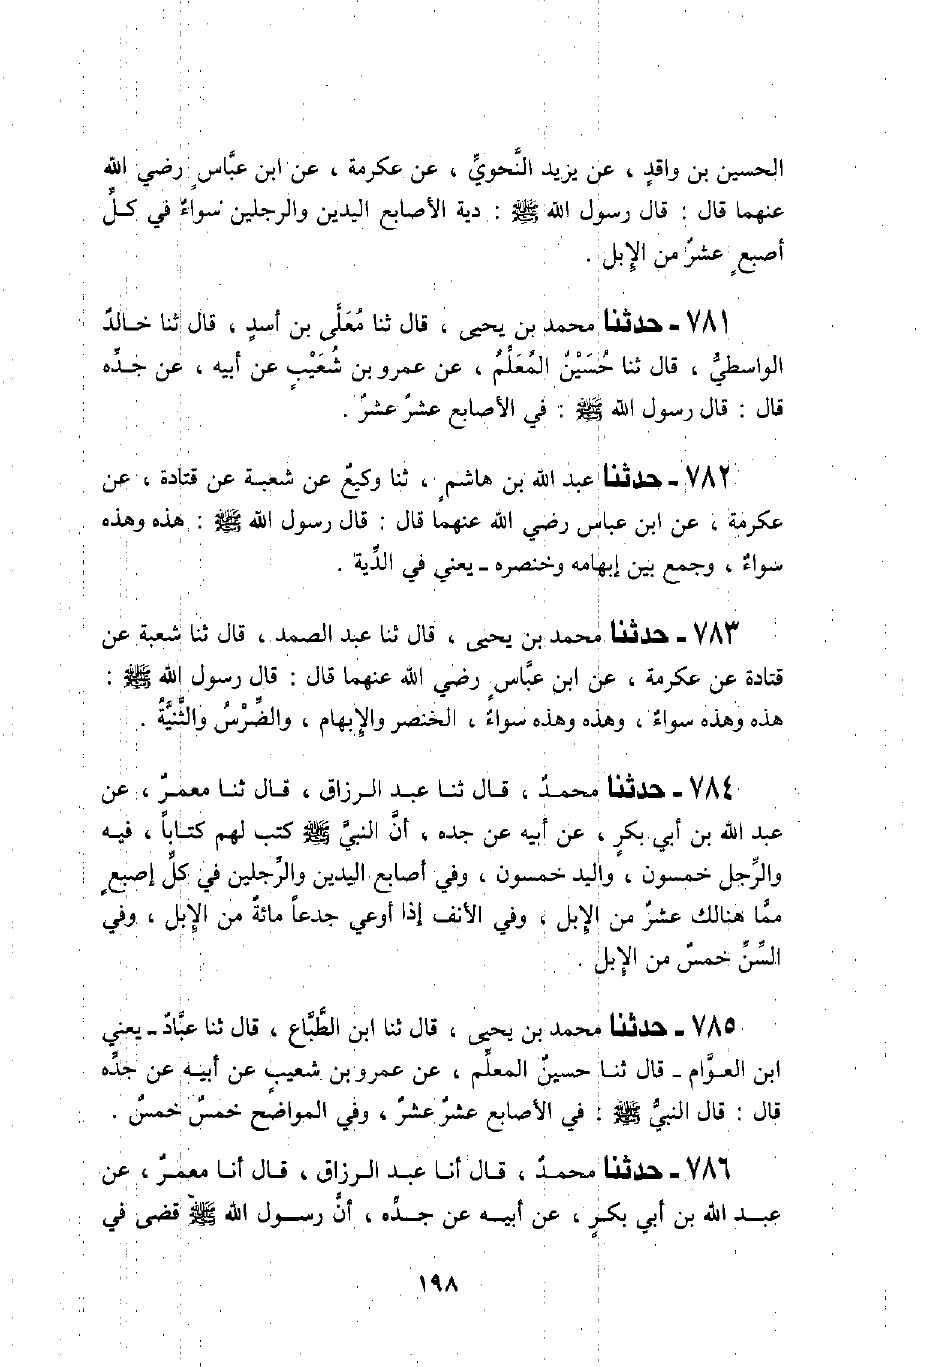 الحسين بن واقدٍ ، عن يزيد النَّحويِّ ، عن عكرمة ، عن ابن عبَّاسٍ رضي الله
عنهما قال : قال رسول الله ﷺ : دية الأصابع اليدين والرجلين سواءٌ في كلِّ
أصبعٍ عشرٌ من الإبل .
٧٨١ - حدثنا محمد بن يحيى ، قال ثنا مُعَلَّى بن أسدٍ ، قال ثنا خالدٌ
الواسطيُّ ، قال ثنا حُسَيْنٌ المُعَلِّمُ ، عن عمرو بن شُعَيْبٍ عن أبيه ، عن جدِّه
قال : قال رسول الله ﷺ : في الأصابع عشرٌ عشرٌ .
٧٨٢ - حدثنا عبد الله بن هاشمٍ ، ثنا وكيعٌ عن شعبة عن قتادة ، عن
عكرمة ، عن ابن عباس رضي الله عنهما قال : قال رسول الله ﷺ : هذه وهذه
سواءٌ ، وجمع بين إبهامه وخنصره - يعني في الدِّية .
٧٨٣ - حدثنا محمد بن يحيى ، قال ثنا عبد الصمد ، قال ثنا شعبة عن
قتادة عن عكرمة ، عن ابن عبَّاسٍ رضي الله عنهما قال : قال رسول الله ﷺ :
هذه وهذه سواءٌ ، وهذه وهذه سواءٌ ، الخنصر والإبهام ، والضِّرْسُ والثَّنِيَّةُ .
٧٨٤ - حدثنا محمدٌ ، قال ثنا عبد الرزاق ، قال ثنا معمرٌ ، عن
عبد الله بن أبي بكرٍ ، عن أبيه عن جده ، أنَّ النبيَّ ﷺ كتب لهم كتاباً ، فيه
والرِّجل خمسون ، واليد خمسون ، وفي أصابع اليدين والرِّجلين في كلِّ إصبعٍ
ممَّا هنالك عشرٌ من الإبل ، وفي الأنف إذا أوعي جدعاً مائةٌ من الإبل ، وفي
السِّنِّ خمسٌ من الإبل .
٧٨٥ - حدثنا محمد بن يحيى ، قال ثنا ابن الطَّبَّاع ، قال ثنا عبَّادٌ - يعني
ابن العوَّام - قال ثنا حسينٌ المعلِّم ، عن عمرو بن شعيبٍ عن أبيه عن جدِّه
قال : قال النبيُّ ﷺ : في الأصابع عشرٌ عشرٌ ، وفي المواضح خمسٌ خمسٌ .
٧٨٦ - حدثنا محمدٌ ، قال أنا عبد الرزاق ، قال أنا معمرٌ ، عن
عبد الله بن أبي بكرٍ ، عن أبيه عن جدِّه ، أنَّ رسول الله ﷺ قضى في
١٩٨